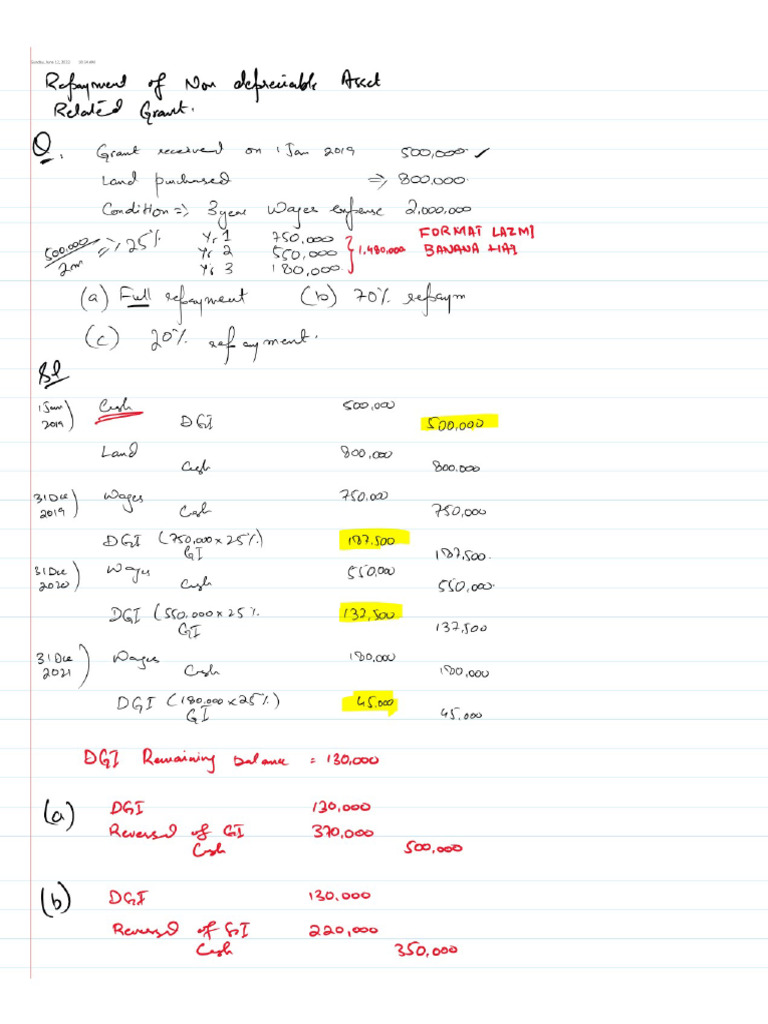 Sunday, June 12, 2022 10:14 AM
Repayment of Non depreciable Asset
Related Grant.
Q. Grant received on 1 Jan 2019 500,000 ✓
Land purchased => 800,000
Condition => 3 year Wages expense 2,000,000
500,000/2m => 25% Yr 1 750,000 FORMAT LAZMI
Yr 2 550,000 } 1,480,000 BANANA HAI
Yr 3 180,000
(a) Full repayment (b) 70% repaym
(c) 20% repayment.
Sol
1 Jan 2019) Cash 500,000
DGI 500,000
Land 800,000
Cash 800,000
31 Dec 2019) Wages 750,000
Cash 750,000
DGI (750,000 x 25%) 187,500
GI 187,500
31 Dec 2020) Wages 550,000
Cash 550,000
DGI (550,000 x 25% 137,500
GI 137,500
31 Dec 2021) Wages 180,000
Cash 180,000
DGI (180,000 x 25%) 45,000
GI 45,000
DGI Remaining balance = 130,000
(a) DGI 130,000
Reversal of GI 370,000
Cash 500,000
(b) DGI 130,000
Reversal of GI 220,000
Cash 350,000